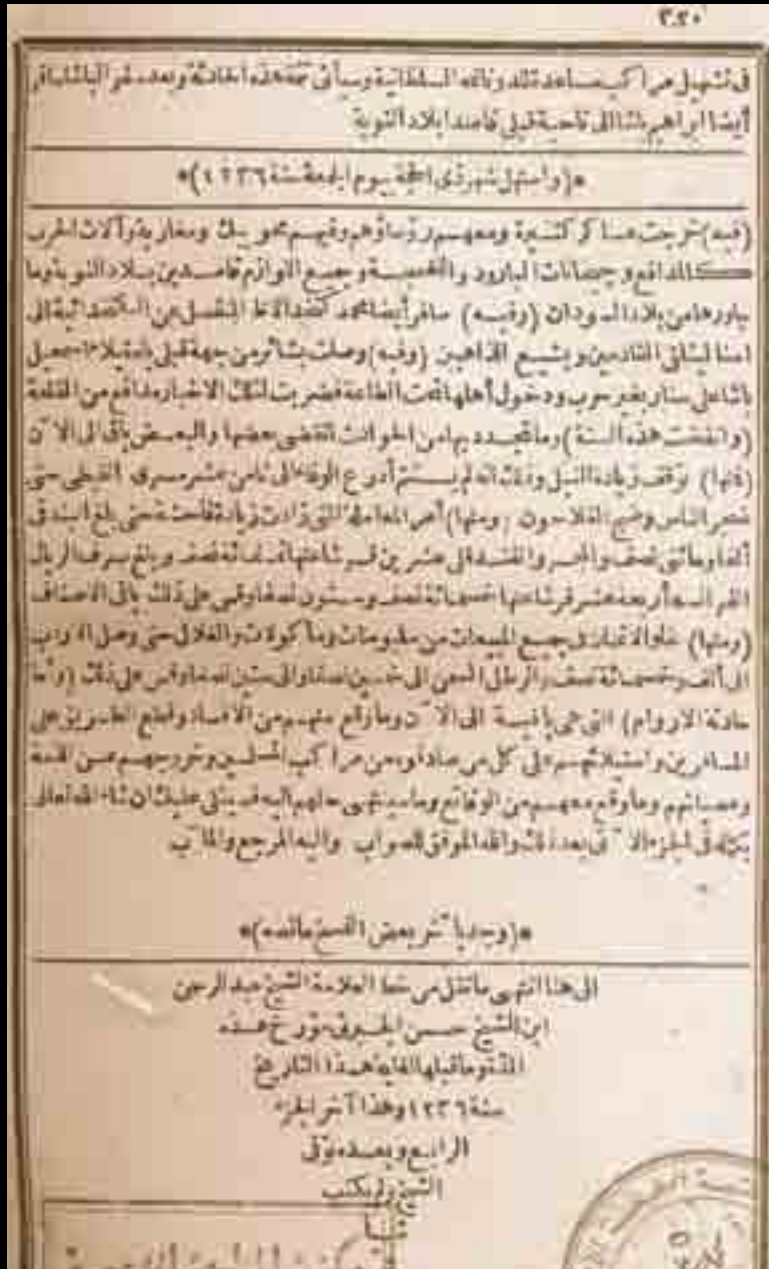 ٣٢٠
فى تشهيل مراكب مساعدة للدونانمه السلطانية وسيأتى تتمة هذه الحادثة وبعد سفر الباشا سافر
أيضا ابراهيم باشا الى ناحية قبلى قاصدا بلاد النوبة
*(واستهل شهر ذى الحجة بيوم الجمعة سنة ١٢٣٦)*
(فيه) خرجت عساكر كثيرة ومعهم رؤساؤهم وفيهم محو بيك ومغاربة وآلات الحرب
كالمدافع وجبخانات البارود واللغمجية وجميع اللوازم قاصدين بلاد النوبة وما
جاورها من بلاد السودان (وفيه) سافر أيضا محمد كتخدا لاظ المنفصل عن الكتخدائية الى
اسنا ليتلقى القادمين ويشيع الذاهبين (وفيه) وصلت بشائر من جهة قبلى باستيلاء اسمعيل
باشا على سنار بغير حرب ودخول أهلها تحت الطاعة فضربت لتلك الاخبار مدافع من القلعة
(وانقضت هذه السنة) وما تجدد بها من الحوادث انقضى بعضها والبعض باق الى الآن
(فمنها) توقف زيادة النيل وذلك انه لم يستتم أذرع الوفاء الى ثامن عشر مسرى القبطى حتى
ضجر الناس وضج الفلاحون (ومنها) أمر المعاملة التى زادت زيادة فاحشة حتى بلغ البندقى
ألفا ومائتى نصف والمجر والفندقلى عشرين قرشا عنها ثمانمائة نصف وبلغ صرف الريال
الفرانسه أربعة عشر قرشا عنها خمسمائة نصف وستون نصفا وقس على ذلك باقى الاصناف
(ومنها) غلو الاثمان فى جميع المبيعات من ملبوسات ومأكولات والغلال حتى وصل الاردب
الى ألف وخمسمائة نصف والرطل السمن الى خمسين نصفا والى ستين نصفا وقس على ذلك (وأما
حادثة الاروام) التى هى باقية الى الآن وما وقع منهم من الافساد وقطع الطريق على
المسافرين واستيلائهم على كل من صادفوه من مراكب المسلمين وخروجهم عن الذمة
وعصيانهم وما وقع معهم من الوقائع وما سينتهى حالهم اليه فسيتلى عليك ان شاء الله تعالى
بكماله فى الجزء الآتى بعد ذلك والله الموفق للصواب واليه المرجع والمآب
*(وجد بآخر بعض النسخ ما نصه)*
الى هنا انتهى ما نقل من خط العلامة الشيخ عبد الرحمن
ابن الشيخ حسن الجبرتى مؤرخ هذه
المدة وما قبلها الغاية هذا التاريخ
سنة ١٢٣٦ وهذا آخر الجزء
الرابع وبعده توفى
الشيخ ولم يكتب
شيأ